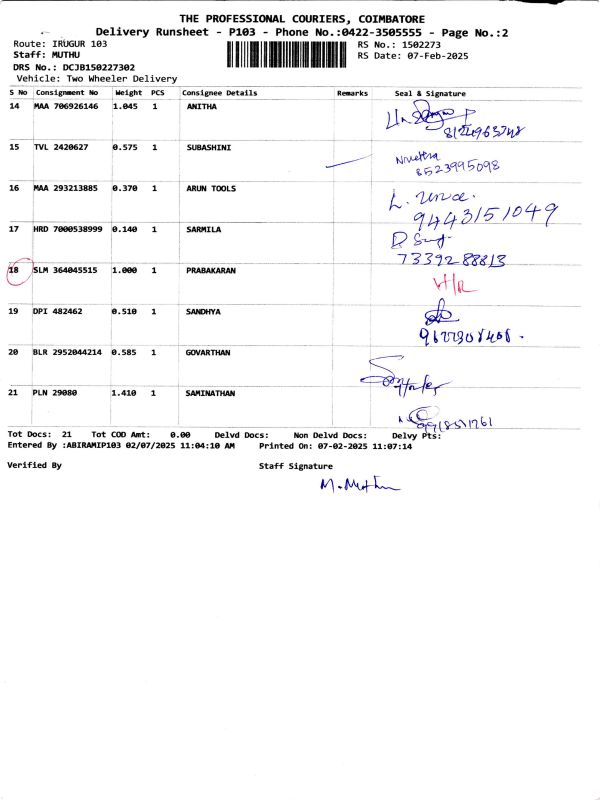 THE PROFESSIONAL COURIERS, COIMBATORE
Delivery Runsheet - P103 - Phone No.:0422-3505555 - Page No.:2
Route: IRUGUR 103 RS No.: 1502273
Staff: MUTHU RS Date: 07-Feb-2025
DRS No.: DCJB150227302
Vehicle: Two Wheeler Delivery
S No Consignment No Weight PCS Consignee Details Remarks Seal & Signature
14 MAA 706926146 1.045 1 ANITHA
15 TVL 2420627 0.575 1 SUBASHINI
8523995098
16 MAA 293213885 0.370 1 ARUN TOOLS
9443151049
17 HRD 7000538999 0.140 1 SARMILA
7339288813
18 SLM 364045515 1.000 1 PRABAKARAN
19 DPI 482462 0.510 1 SANDHYA
20 BLR 2952044214 0.585 1 GOVARTHAN
21 PLN 29080 1.410 1 SAMINATHAN
Tot Docs: 21 Tot COD Amt: 0.00 Delvd Docs: Non Delvd Docs: Delvy Pts:
Entered By :ABIRAMIP103 02/07/2025 11:04:10 AM Printed On: 07-02-2025 11:07:14
Verified By Staff Signature
M. Muthu